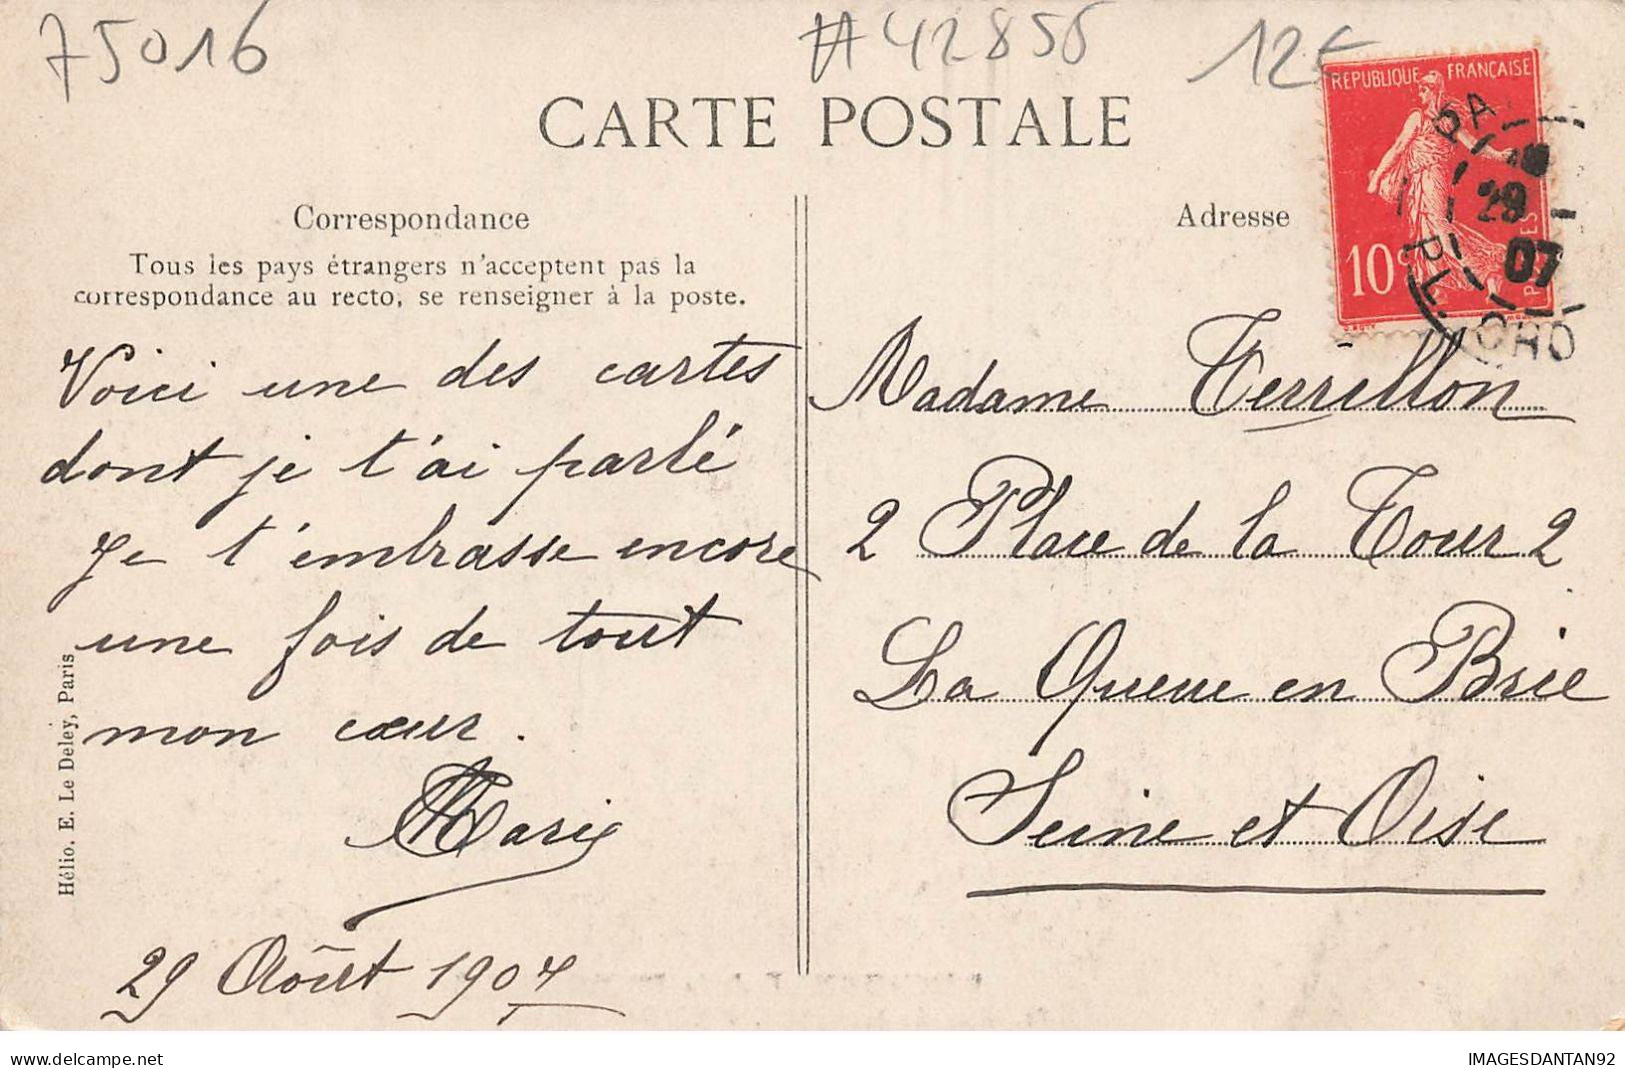 75016
#42856
12€
CARTE POSTALE
REPUBLIQUE FRANÇAISE
10c
PA
29
07
PL. CHO
Correspondance
Tous les pays étrangers n'acceptent pas la
correspondance au recto, se renseigner à la poste.
Voici une des cartes
dont je t'ai parlé
Je t'embrasse encore
une fois de tout
mon cœur.
Marie
29 Août 1907
Hélio. E. Le Deley, Paris
Adresse
Madame Terrillon
2 Place de la Tour 2
La Queue en Brie
Seine et Oise
delcampe.net
IMAGESDANTAN92